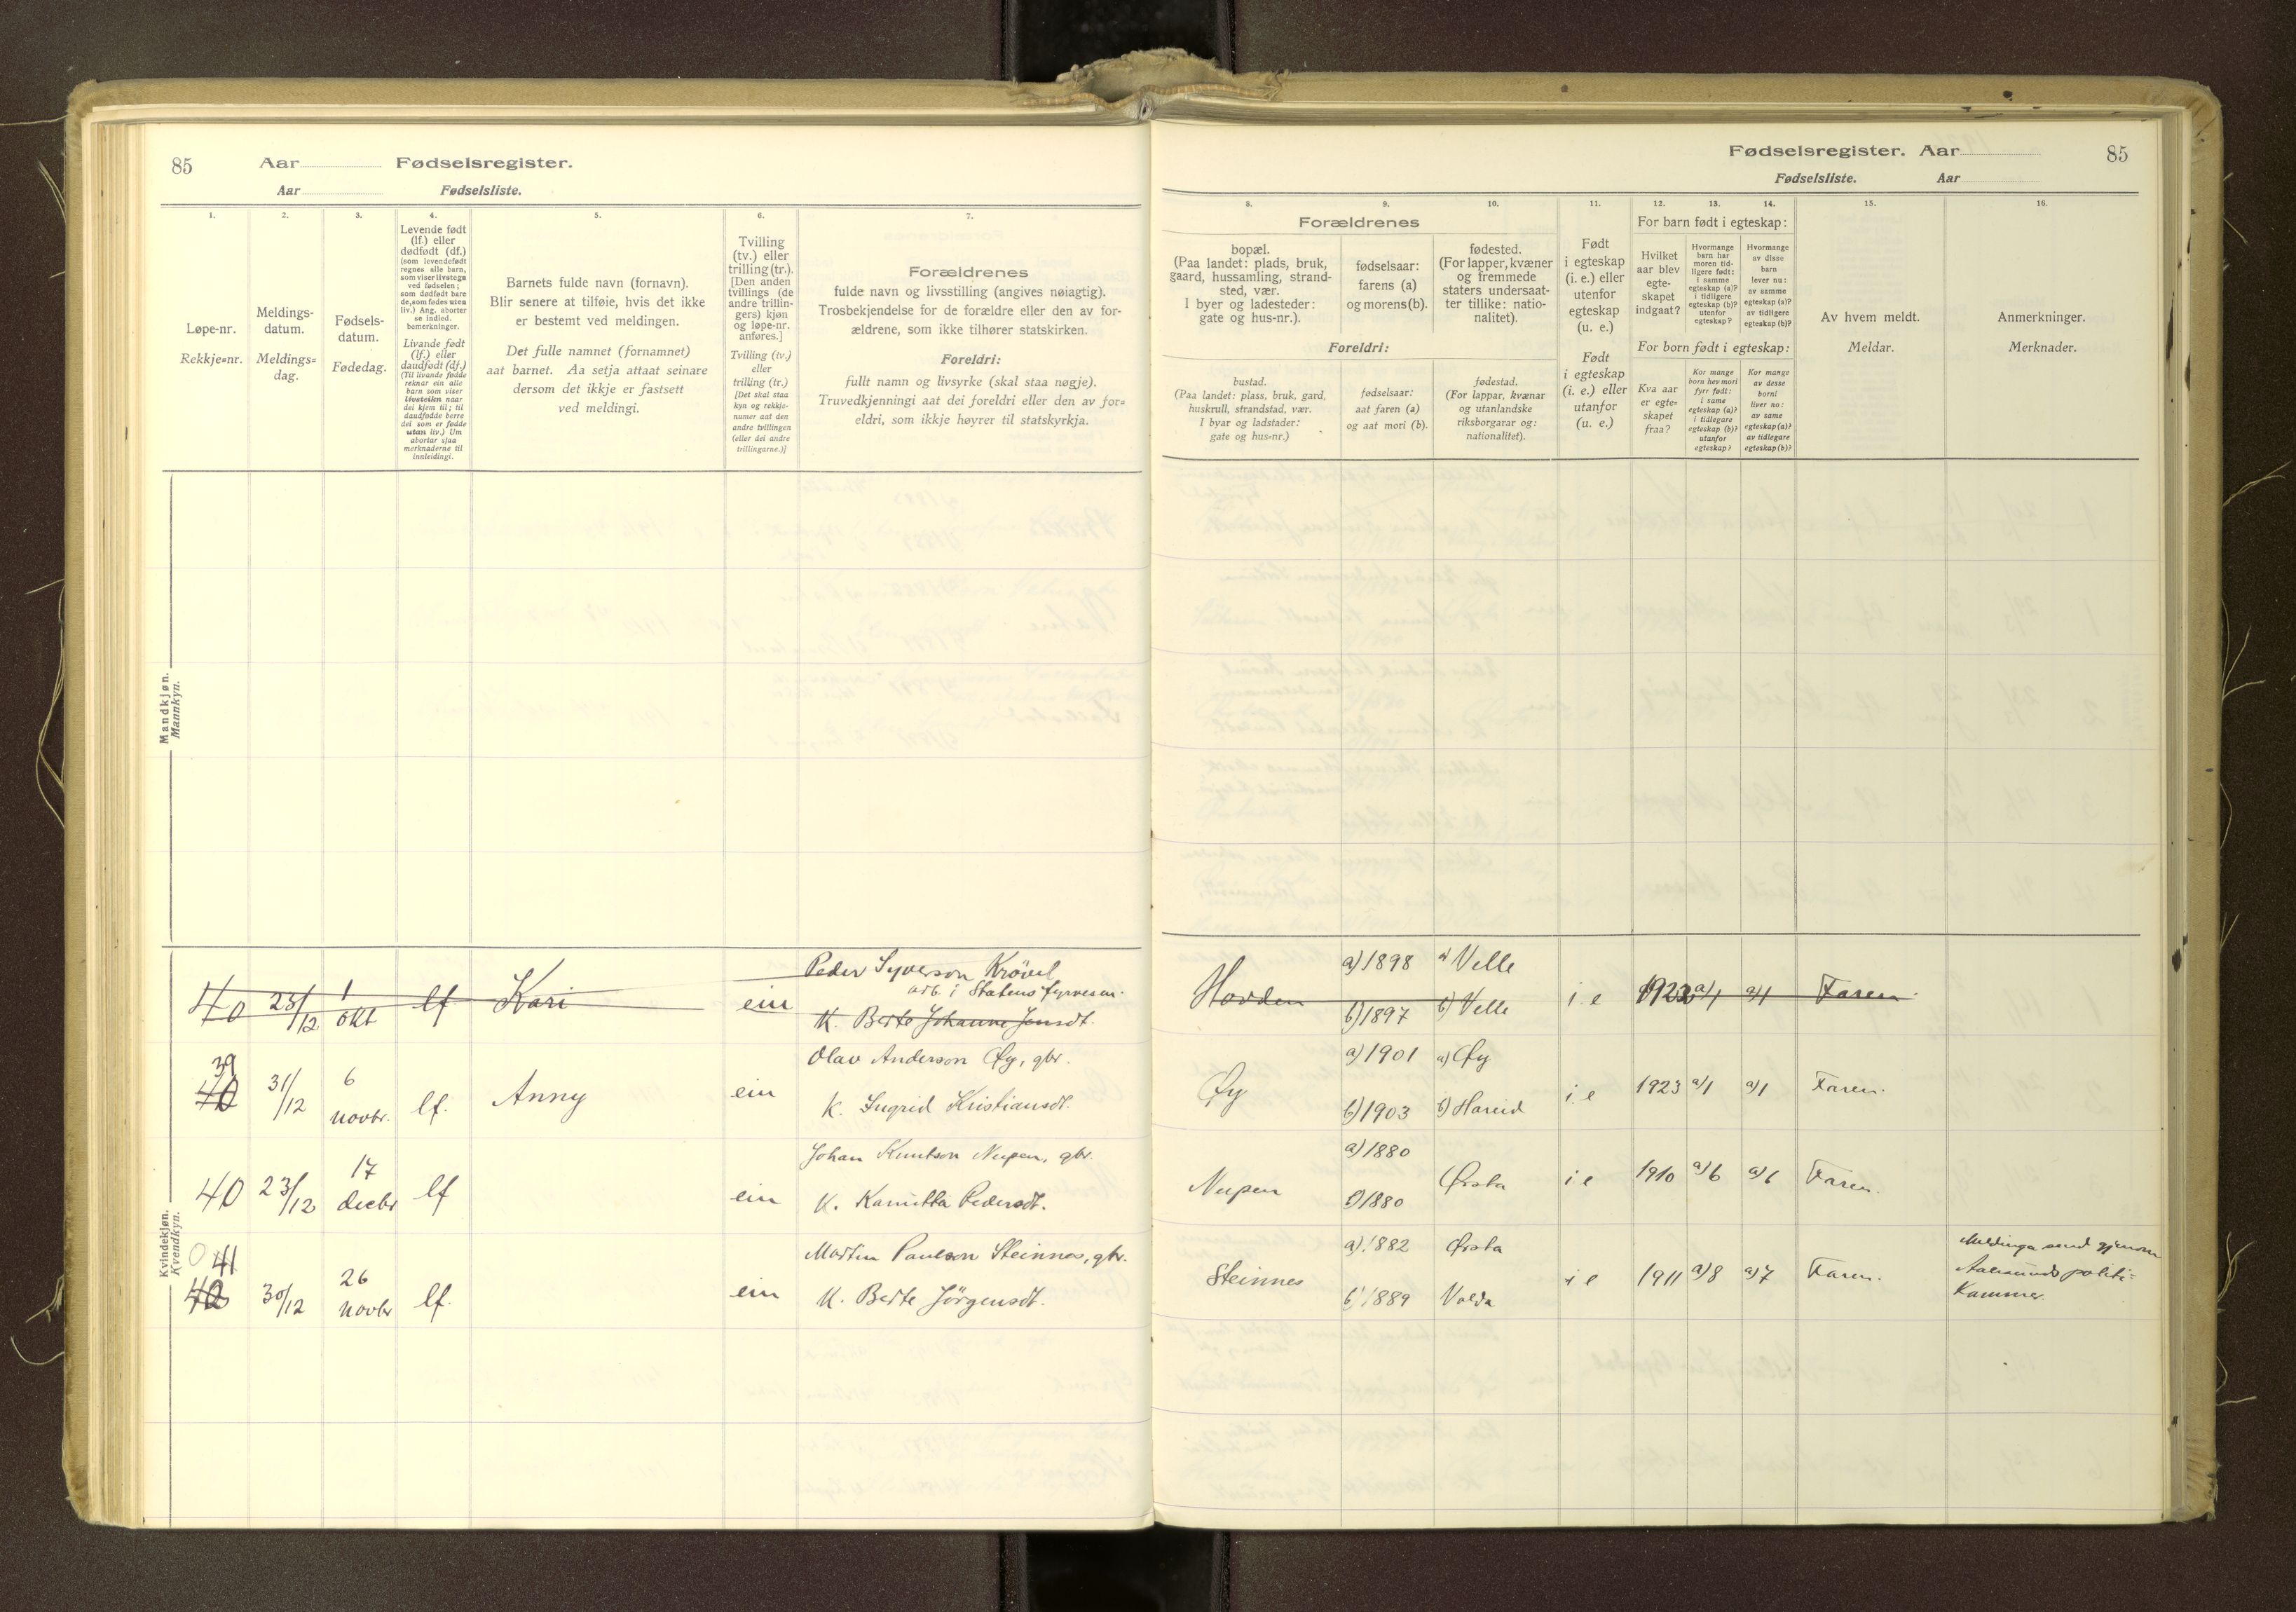 85 Aar Fødselsregister.
Aar Fødselsliste.
Fødselsregister. Aar 85
Fødselsliste. Aar
1.
Løpe-nr.
Rekkje=nr.
2.
Meldings-
datum.
Meldings=
dag.
3.
Fødsels-
datum.
Fødedag.
4.
Levende født
(lf.) eller
dødfødt (df.)
(som levendefødt
regnes alle barn,
som viser livstegn
ved fødselen;
som dødfødt bare
de, som fødes uten
liv.) Ang. aborter
se indled.
bemerkninger.
Livande født
(lf.) eller
daudfødt (df.)
(Til livande fødde
reknar ein alle
barn som viser
livsteikn naar
dei kjem til; til
daudfødde berre
dei som er fødde
utan liv.) Um
abortar sjaa
merknaderne til
innleidingi.
5.
Barnets fulde navn (fornavn).
Blir senere at tilføie, hvis det ikke
er bestemt ved meldingen.
Det fulle namnet (fornamnet)
aat barnet. Aa setja attaat seinare
dersom det ikkje er fastsett
ved meldingi.
6.
Tvilling
(tv.) eller
trilling (tr.).
[Den anden
tvillings (de
andre trillin-
gers) kjøn
og løpe-nr.
anføres.]
Tvilling (tv.)
eller
trilling (tr.)
[Det skal staa
kyn og rekkje-
numer aat den
andre tvillingen
(eller dei andre
trillingarne.)]
7.
Forældrenes
fulde navn og livsstilling (angives nøiagtig).
Trosbekjendelse for de forældre eller den av for-
ældrene, som ikke tilhører statskirken.
Foreldri:
fullt namn og livsyrke (skal staa nøgje).
Truvedkjenningi aat dei foreldri eller den av for=
eldri, som ikkje høyrer til statskyrkja.
8.
Forældrenes
bopæl.
(Paa landet: plads, bruk,
gaard, hussamling, strand-
sted, vær.
I byer og ladesteder:
gate og hus-nr.).
Foreldri:
bustad.
(Paa landet: plass, bruk, gard,
huskrull, strandstad, vær.
I byar og ladstader:
gate og hus=nr.)
9.
fødselsaar:
farens (a)
og morens (b).
fødselsaar:
aat faren (a)
og aat mori (b).
10.
fødested.
(For lapper, kvæner
og fremmede
staters undersaat-
ter tillike: natio-
nalitet).
fødestad.
(For lappar, kvænar
og utanlandske
riksborgarar og:
nationalitet).
11.
Født
i egteskap
(i. e.) eller
utenfor
egteskap
(u. e.)
Født
i egteskap
(i. e.) eller
utanfor
(u. e.)
12. 13. 14.
For barn født i egteskap:
Hvilket
aar blev
egte-
skapet
indgaat?
Hvormange
barn har
moren tid-
ligere født:
i samme
egteskap (a)?
i tidligere
egteskap (b)?
utenfor
egteskap?
Hvormange
av disse
barn
lever nu:
av samme
egteskap (a)?
av tidligere
egteskap (b)?
For born født i egteskap:
Kva aar
er egte=
skapet
fraa?
Kor mange
born hev mori
fyrr født:
i same
egteskap (a)?
i tidlegare
egteskap (b)?
utanfor
egteskap?
Kor mange
av desse
borni
liver no:
av same
egteskap (a)?
av tidlegare
egteskap (b)?
15.
Av hvem meldt.
Meldar.
16.
Anmerkninger.
Merknader.
Mandkjøn.
Mannkyn.
Kvindekjøn.
Kvendkyn.
Peder Syverson Krövel a) 1898 a) Velle
arb. i Statens fyrvesen.
40 23/12 1 okt lf Kari ein Hovden i e 1923 a)1 a)1 Faren
K. Berte Johanne Jensdt. b) 1897 b) Velle
39 Olav Anderson Øy, gbr. a) 1901 a) Øy
40 31/12 6 novbr. lf. Anny ein Øy i e 1923 a)1 a)1 Faren.
K. Ingrid Kristiansdt. b) 1903 b) Hareid
Johan Knutson Nupen, gbr. a) 1880
40 23/12 17 decbr lf ein Nupen Ørsta i e 1910 a)6 a)6 Faren.
K. Kanutta Pedersdt. b) 1880
0 41 Martin Paulson Steinnes, gbr. a) 1882 Ørsta
40 30/12 26 novbr lf. ein Steinnes i e 1911 a)8 a)7 Faren.
K. Berte Jörgensdt. b) 1889 Volda
Meldinga send gjenom
Aalesunds politi=
kammer.